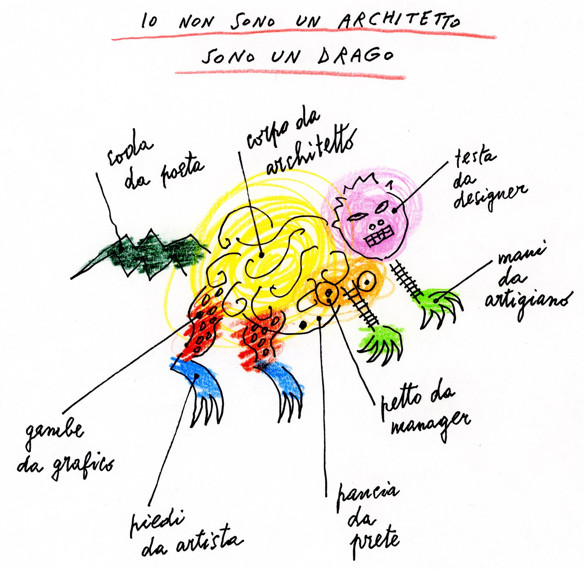 IO NON SONO UN ARCHITETTO
SONO UN DRAGO
coda
da poeta
corpo da
architetto
testa
da
designer
mani
da
artigiano
petto da
manager
gambe
da grafico
piedi
da artista
pancia
da
prete